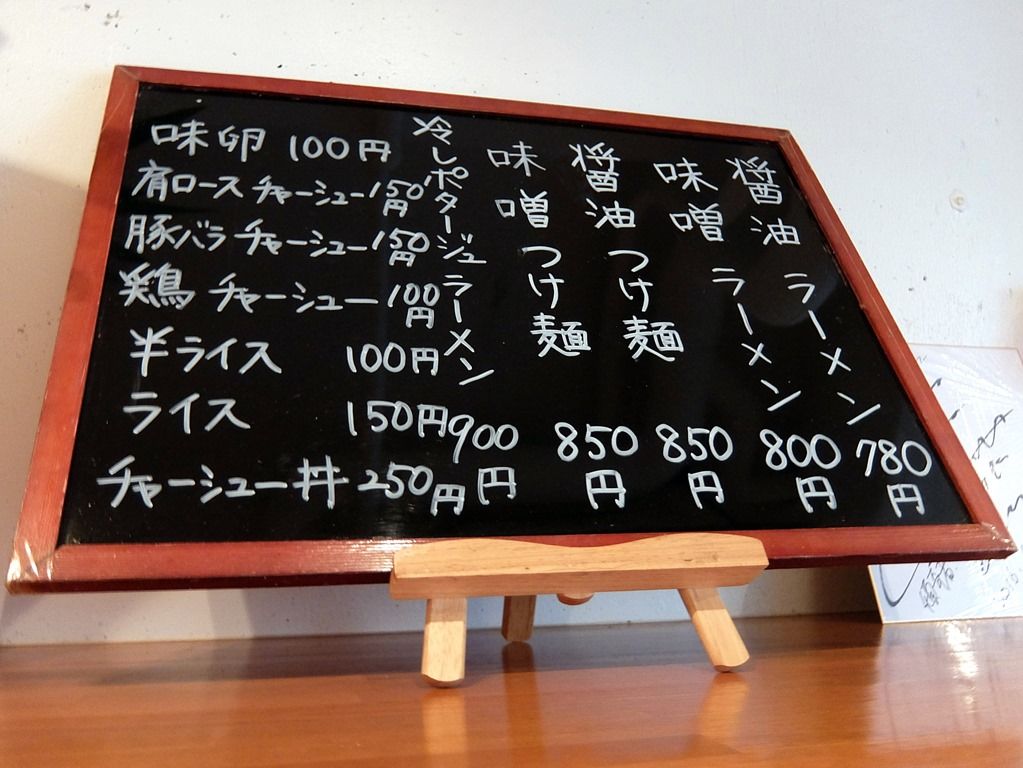 醤油ラーメン 780円
味噌ラーメン 800円
醤油つけ麺 850円
味噌つけ麺 850円
冷しポタージュラーメン 900円
味卵 100円
肩ロースチャーシュー 150円
豚バラチャーシュー 150円
鶏チャーシュー 100円
半ライス 100円
ライス 150円
チャーシュー丼 250円